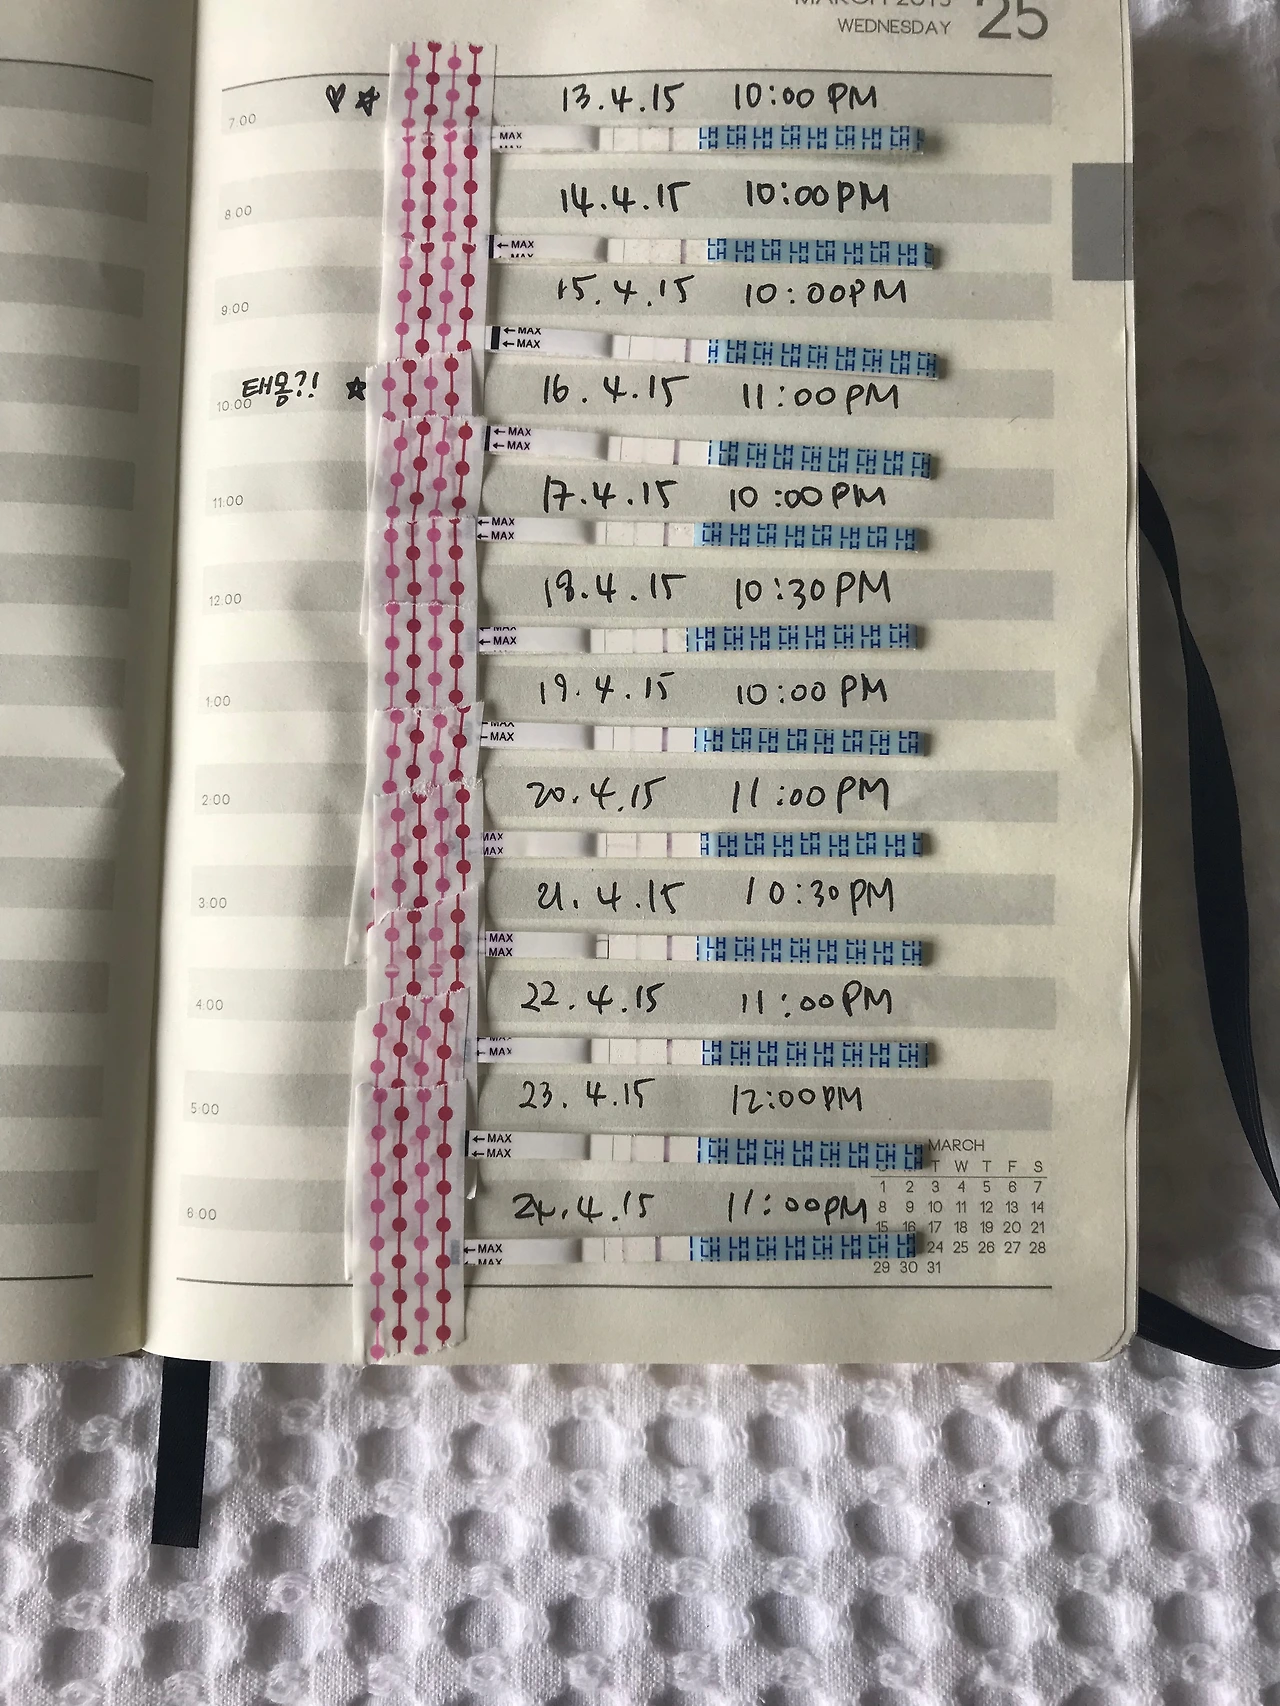 MARCH 2015
WEDNESDAY 25
7:00
♡☆ 13.4.15 10:00 PM
MAX
LH LH LH LH LH LH LH LH
8:00
14.4.15 10:00PM
← MAX
LH LH LH LH LH LH LH LH
9:00
15.4.15 10:00PM
← MAX
← MAX
LH LH LH LH LH LH LH LH
태몽?! ☆ 16.4.15 11:00PM
10:00
← MAX
← MAX
LH LH LH LH LH LH LH LH
11:00
17.4.15 10:00PM
← MAX
← MAX
LH LH LH LH LH LH LH LH
12:00
18.4.15 10:30PM
← MAX
LH LH LH LH LH LH LH LH
1:00
19.4.15 10:00 PM
MAX
← MAX
LH LH LH LH LH LH LH LH
2:00
20.4.15 11:00PM
MAX
MAX
LH LH LH LH LH LH LH LH
3:00
21.4.15 10:30PM
MAX
MAX
LH LH LH LH LH LH LH LH
4:00
22.4.15 11:00PM
← MAX
LH LH LH LH LH LH LH LH
5:00
23.4.15 12:00PM
← MAX
← MAX
LH LH LH LH LH LH LH LH
MARCH
T W T F S
1 2 3 4 5 6 7
6:00
24.4.15 11:00PM
8 9 10 11 12 13 14
15 16 17 18 19 20 21
← MAX
← MAX
LH LH LH LH LH LH LH LH
24 25 26 27 28
29 30 31